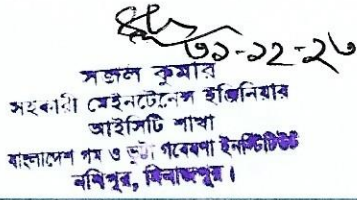 ৩১-১২-২৩
সজল কুমার
সহকারী মেইনটেনেন্স ইঞ্জিনিয়ার
আইসিটি শাখা
বাংলাদেশ গম ও ভুট্টা গবেষণা ইনস্টিটিউট
নশিপুর, দিনাজপুর।